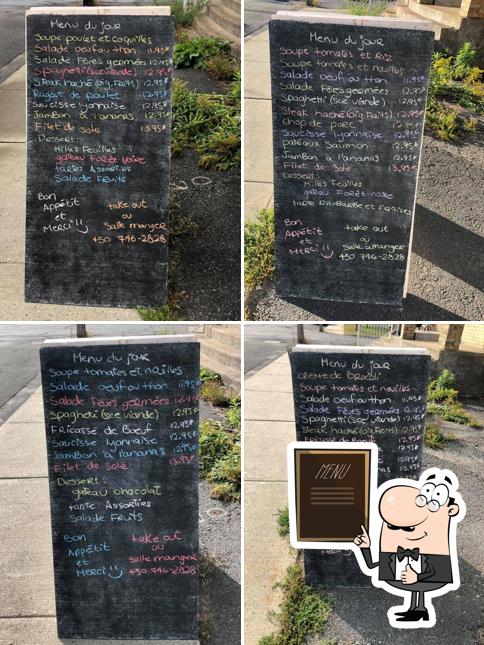 Menu du jour
Soupe poulet et coquilles
Salade oeuf ou thon 11.95$
Salade Fèves germées 12.95$
Spaghetti (sce viande) 12.95$
Steak haché (oig. Frits) 12.95$
Ragout de poulet 12.95$
Saucisse lyonnaise 12.95$
Jambon à l'ananas 12.95$
Filet de sole 13.95$
Dessert:
Milles Feuilles
gateau Forêt noire
tartes Assorties
Salade Fruits
Bon
Appétit
et
Merci!!
take out
ou
salle manger
450 746-2828
Menu du jour
Soupe tomates et Riz
Soupe tomates et nouilles
Salade oeuf ou thon
salade Fèves germées
Spaghetti (sce viande) 12.95$
Steak haché (oig. Frits) 12.95$
chop de porc
Saucisse lyonnaise 12.95$
pâtéaux Saumon
Jambon à l'ananas 12.95$
Filet de Sole 13.95$
Dessert:
Milles Feuilles
gateau Forêt-noire
tarte Rhubarbe et Fraises
Bon
Appétit
et
Merci!!
take out
ou
salle a manger
450 746-2828
Menu du jour
Soupe tomates et nouilles
Salade oeuf ou thon 11.95$
Salade Fèves germées 12.95$
Spaghetti (sce viande) 12.95$
Fricassé de Boeuf 12.95$
Saucisse lyonnaise 12.95$
Jambon à l'ananas 12.95$
Filet de Sole 13.95$
Dessert:
gateau chocolat
tarte Assorties
Salade Fruits
Bon
Appétit
et
Merci!!
take out
ou
salle manger
450 746-2828
Menu du jour
creme de Brocoli
Soupe tomates et nouilles
Salade oeuf ou thon
Salade Fèves germées 12.95$
Spaghetti (sce viande) 12.95$
Steak haché (oig. Frits) 12.95$
Fricassé de Boeuf
MENU